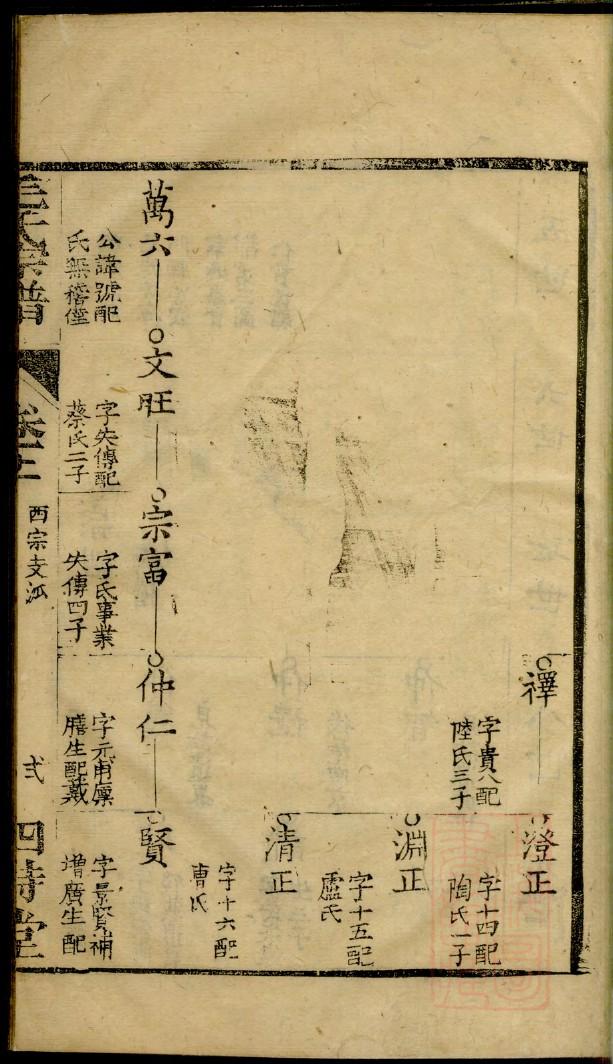 禪
字貴八配
陸氏三子
澄正
字十四配
陶氏一子
淵正
字十五配
盧氏
清正
字十六配
曹氏
萬六
公諱號配
氏無稽僅
文旺
字失傳配
蔡氏二子
宗富
字氏事業
失傳四子
仲仁
字元甫廩
膳生配戴
賢
字景賢補
增廣生配
氏宗譜
卷
西宗支派
弍
四詩堂